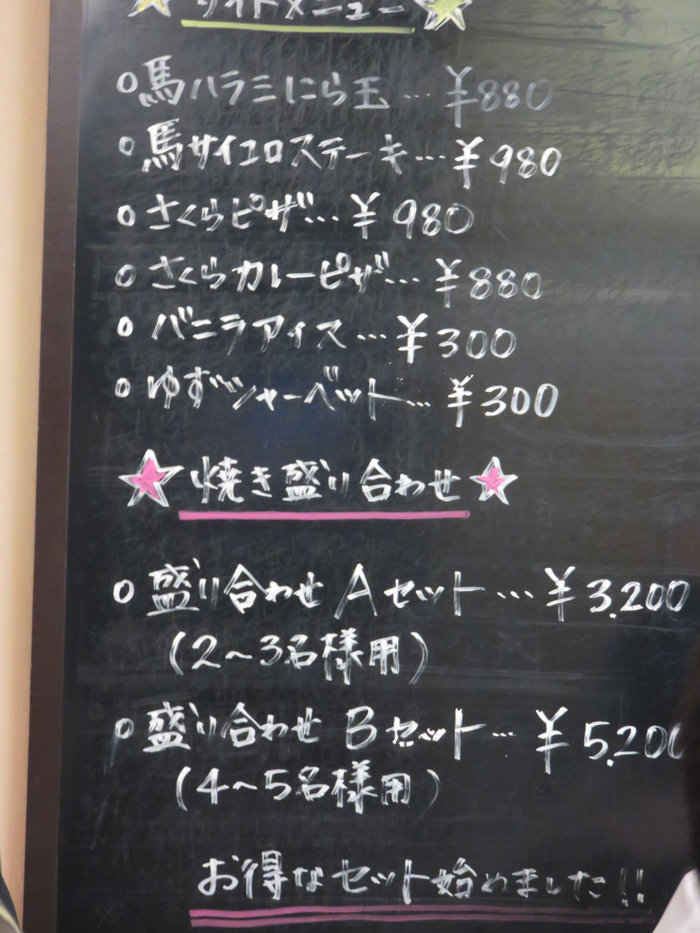 サイドメニュー
○馬ハラミにら玉…¥880
○馬サイコロステーキ…¥980
○さくらピザ…¥980
○さくらカレーピザ…¥880
○バニラアイス…¥300
○ゆずシャーベット…¥300
☆焼き盛り合わせ☆
○盛り合わせAセット…¥3,200
(2~3名様用)
○盛り合わせBセット…¥5,200
(4~5名様用)
お得なセット始めました!!